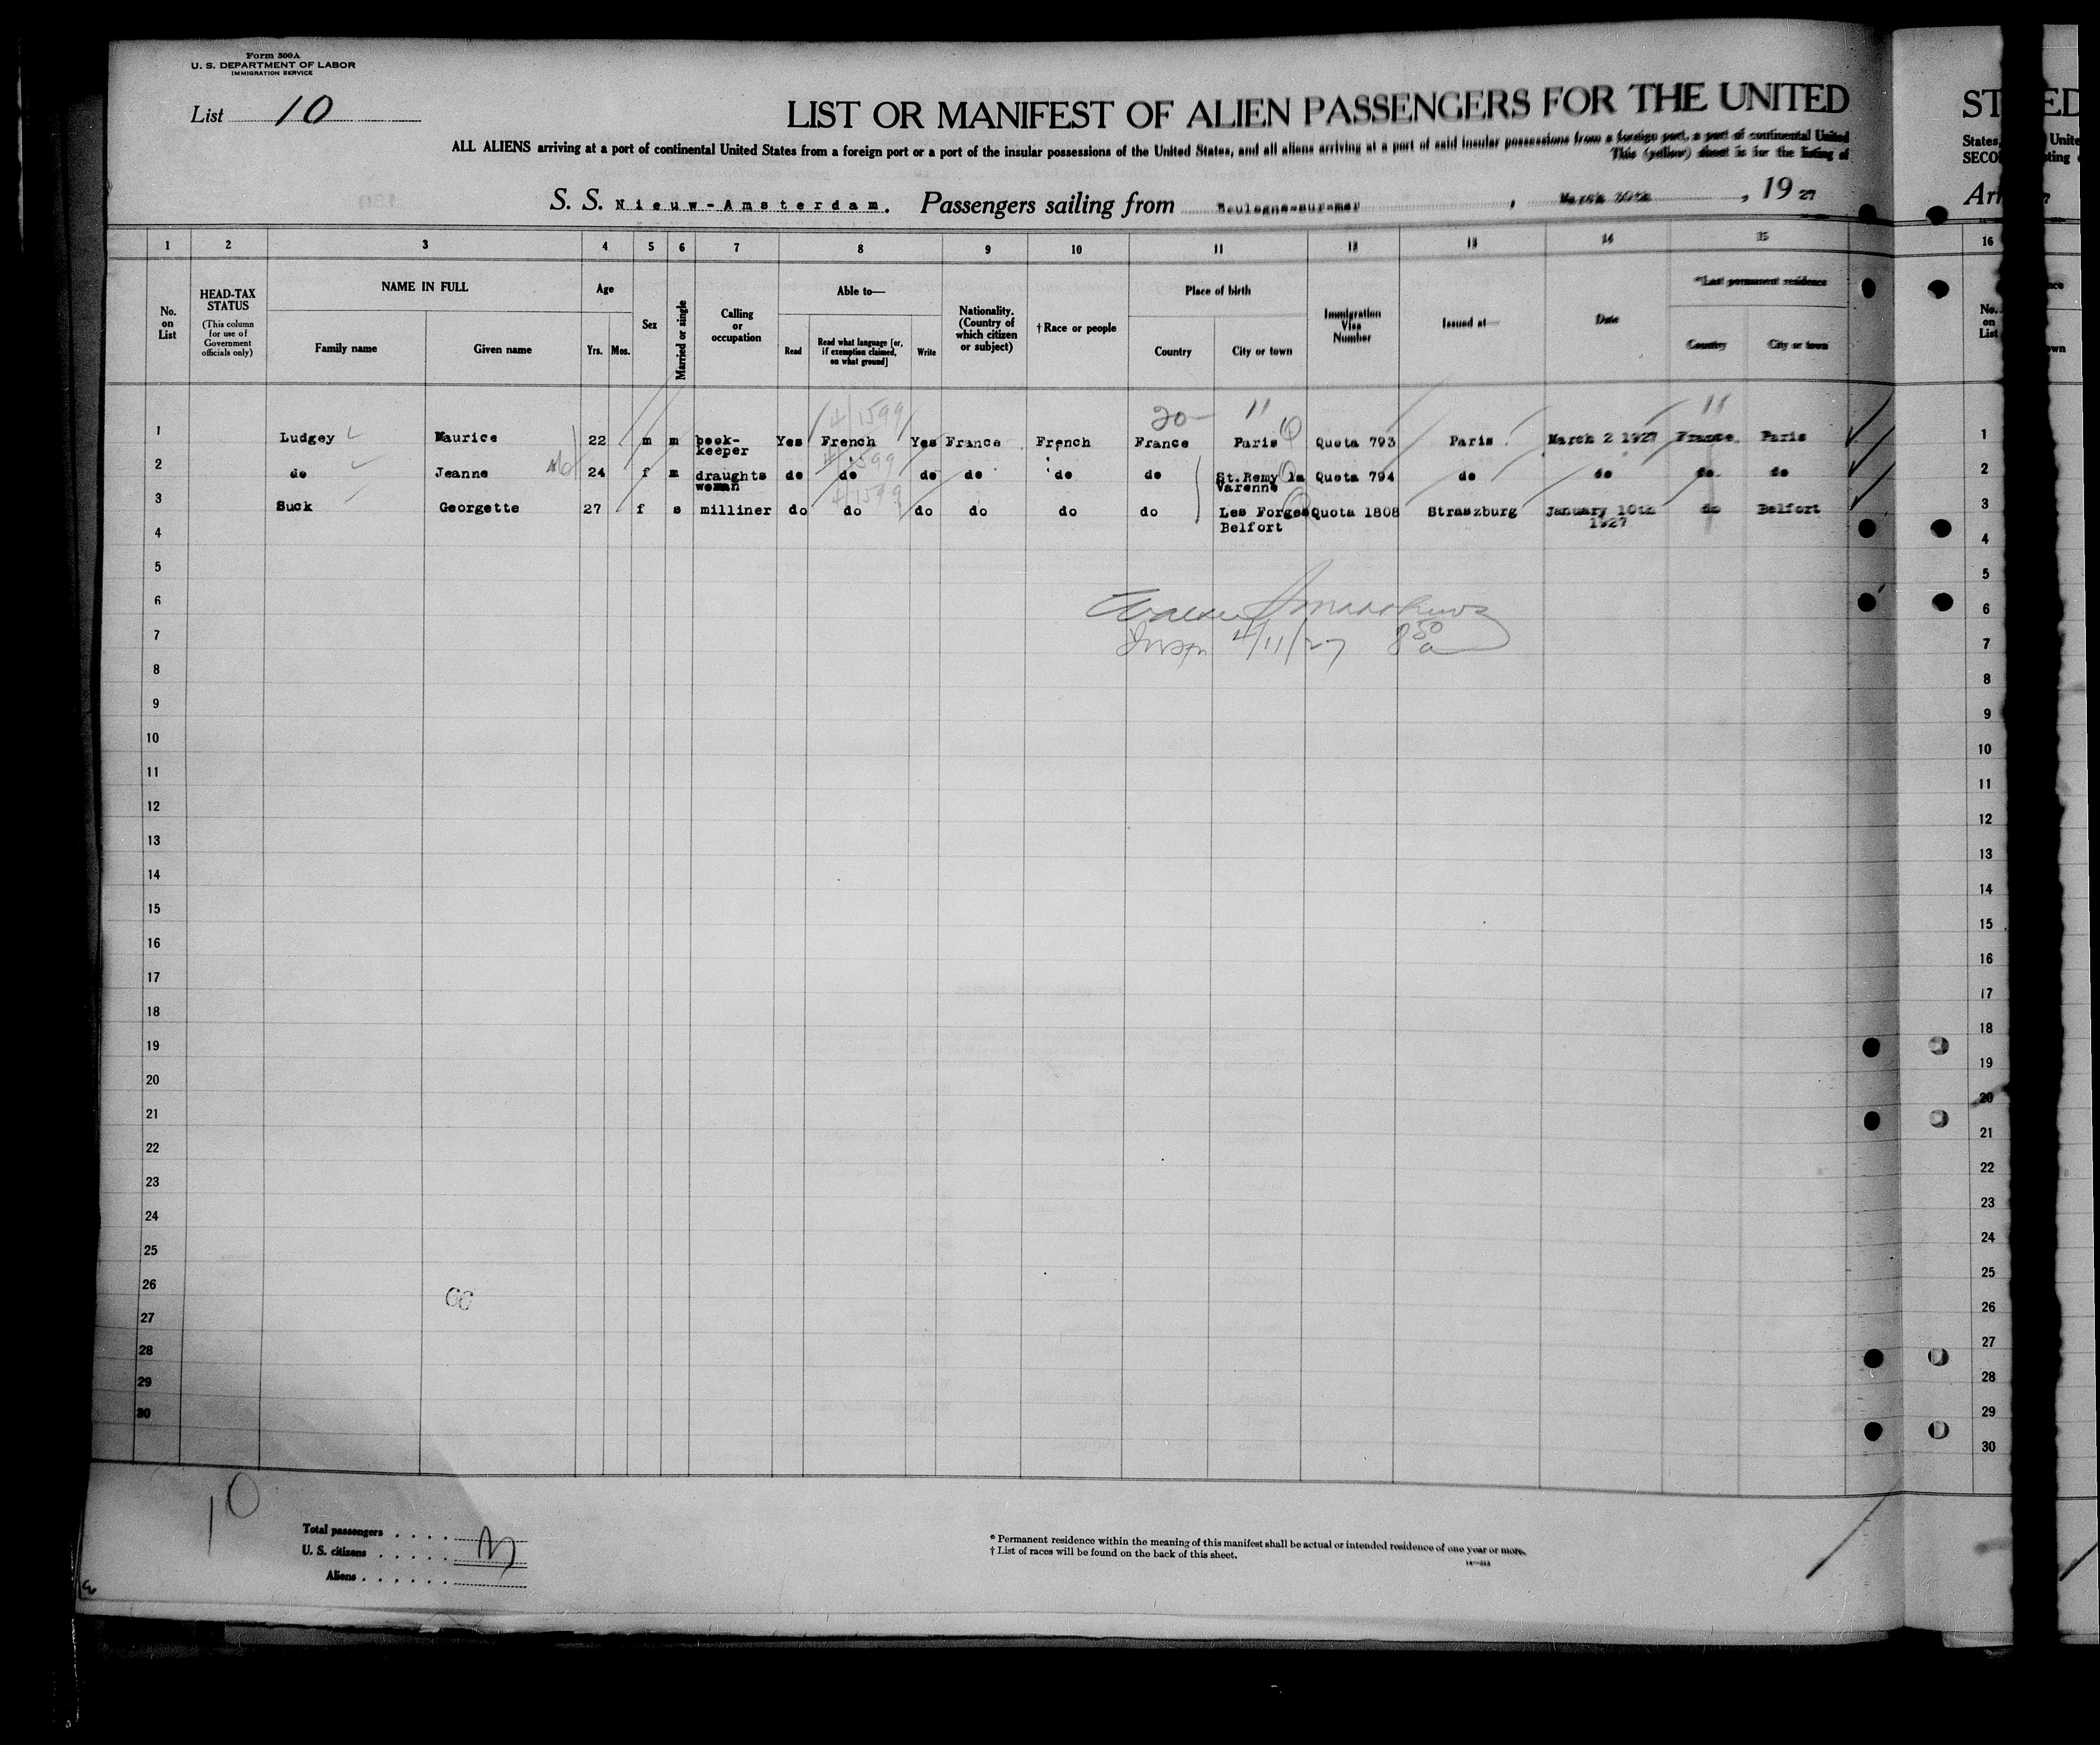 Form 500A
U. S. DEPARTMENT OF LABOR
IMMIGRATION SERVICE
List 10
LIST OR MANIFEST OF ALIEN PASSENGERS FOR THE UNITED
ALL ALIENS arriving at a port of continental United States from a foreign port or a port of the insular possessions of the United States, and all aliens arriving at a port of said insular possessions from a foreign port, a port of continental United
This (yellow) sheet is for the listing of
S. S. Nieuw-Amsterdam. Passengers sailing from Boulogne-sur-mer, March 30th, 19 27
1 2 3 4 5 6 7 8 9 10 11 12 13 14 15
No. on List
HEAD-TAX STATUS
(This column for use of Government officials only)
NAME IN FULL
Family name
Given name
Age
Yrs. Mos.
Sex
Married or single
Calling or occupation
Able to—
Read
Read what language [or, if exemption claimed, on what ground]
Write
Nationality. (Country of which citizen or subject)
† Race or people
Place of birth
Country
City or town
Immigration Visa Number
Issued at—
Date
*Last permanent residence
Country
City or town
4/1599 20- 11 11
1 Ludgey Maurice 22 m m book-keeper Yes French Yes France French France Paris Quota 793 Paris March 2 1927 France Paris
4/1599
2 do Jeanne 24 f m draughts woman do do do do do do St.Remy la Varenne Quota 794 do do do do
4/1599
3 Suck Georgette 27 f s milliner do do do do do do Les Forges Belfort Quota 1808 Straszburg January 10th 1927 do Belfort
4
5
6
7
Insp 4/11/27 8 50 a
8
9
10
11
12
13
14
15
16
17
18
19
20
21
22
23
24
25
26
27
28
29
30
10
Total passengers
U. S. citizens
Aliens
* Permanent residence within the meaning of this manifest shall be actual or intended residence of one year or more.
† List of races will be found on the back of this sheet.
ST ED
States, Unite
SECO ting
Arr
16
No. on List
1
2
3
4
5
6
7
8
9
10
11
12
13
14
15
16
17
18
19
20
21
22
23
24
25
26
27
28
29
30